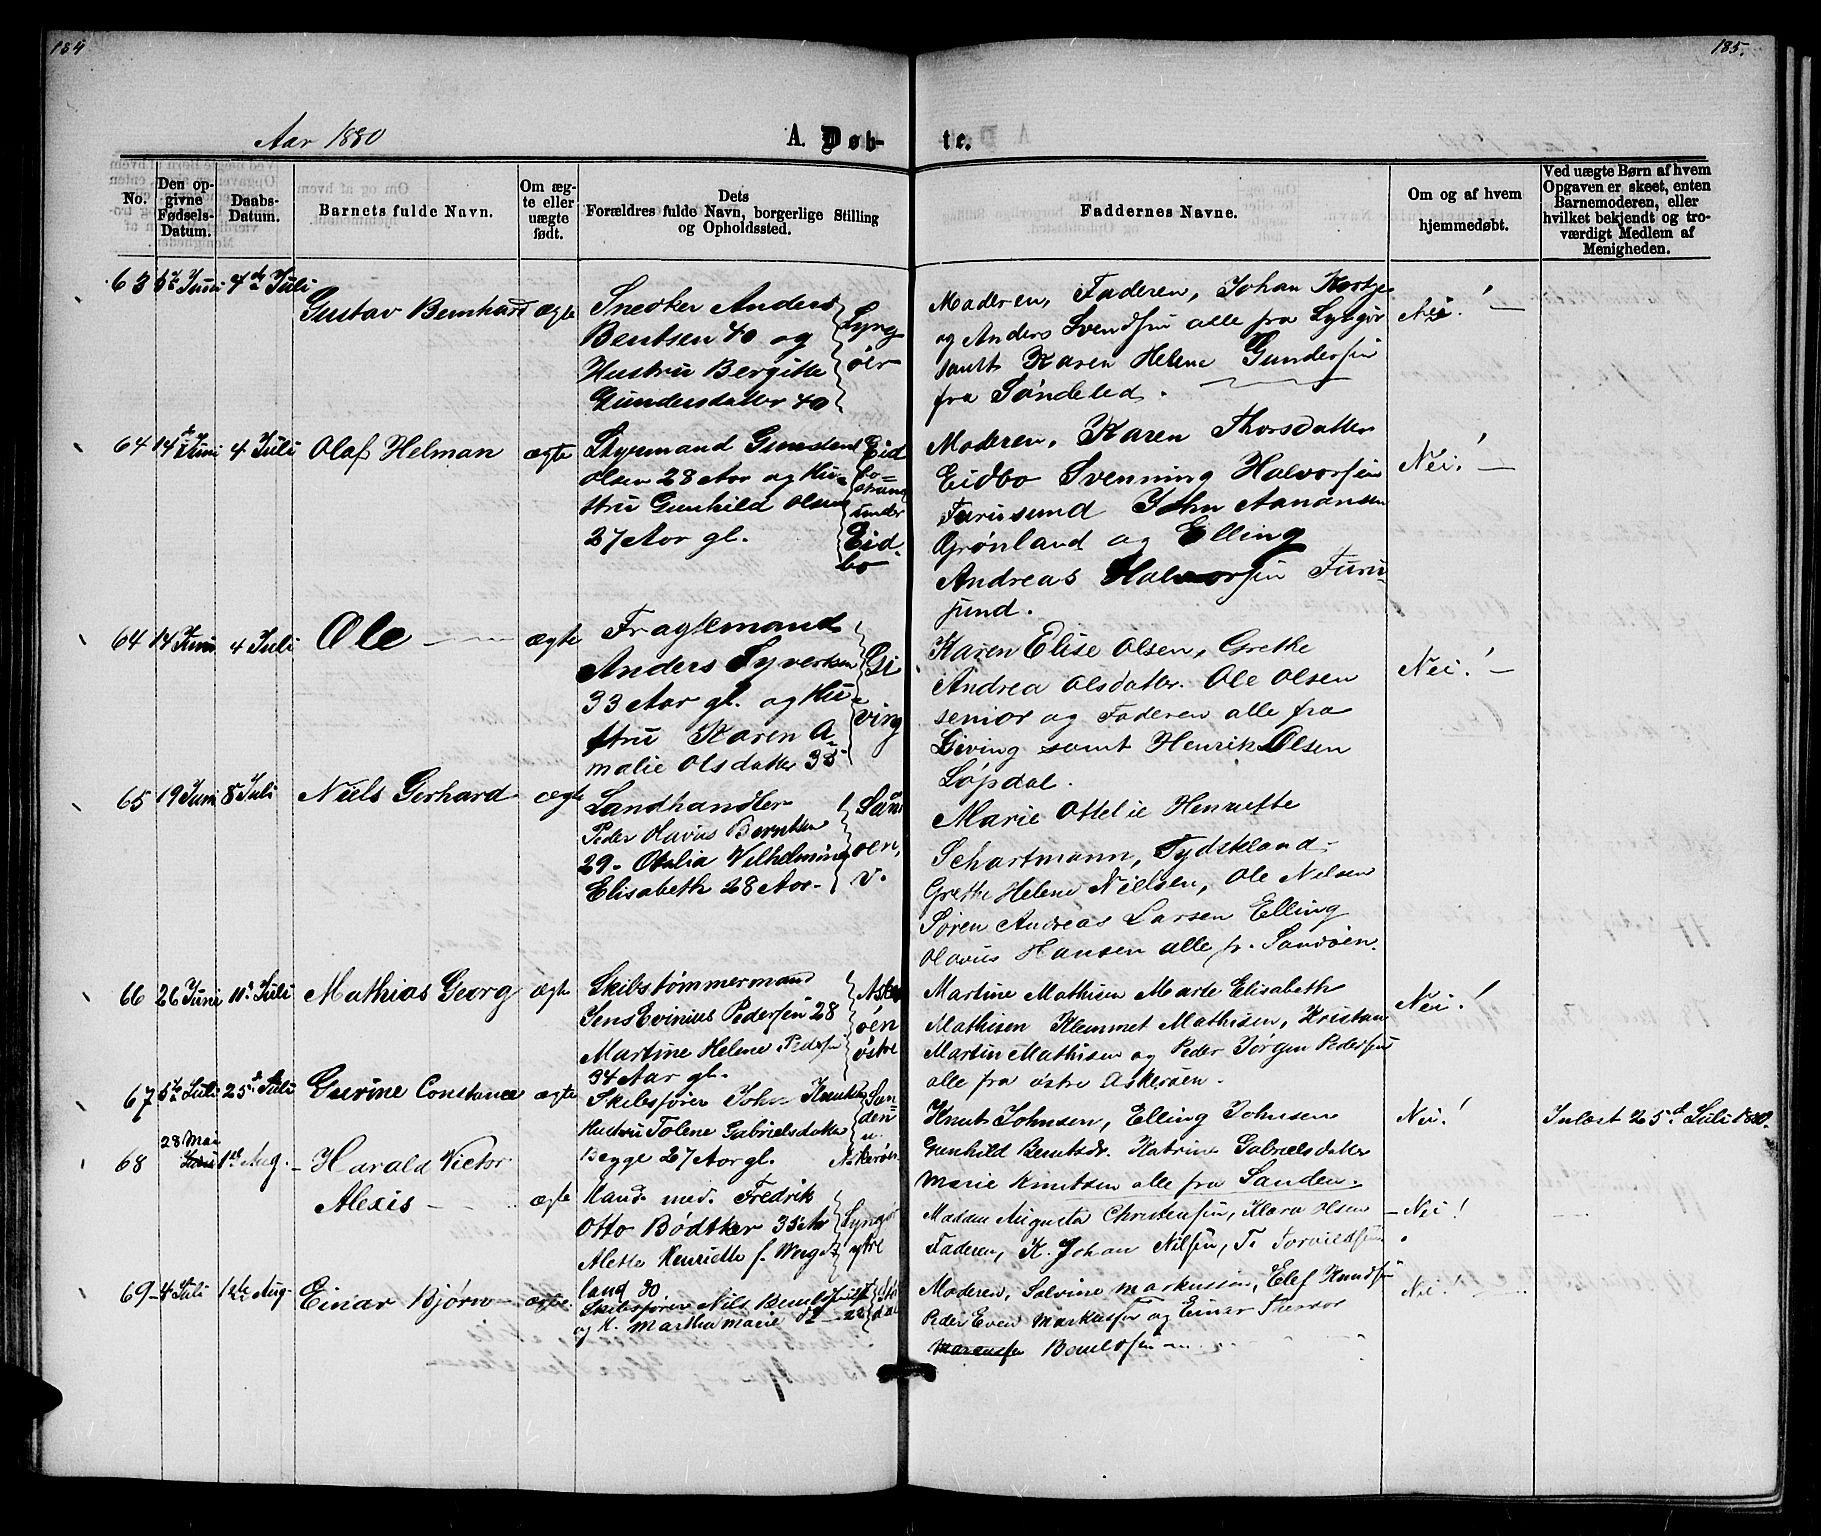 184
185.
Aar 1880
A. Døb-
te.
No.
Den op-
givne
Fødsels-
Datum.
Daabs-
Datum.
Barnets fulde Navn.
Om æg-
te eller
uægte
født.
Dets
Forældres fulde Navn, borgerlige Stilling
og Opholdssted.
Faddernes Navne.
Om og af hvem
hjemmedøbt.
Ved uægte Børn af hvem
Opgaven er skeet, enten
Barnemoderen, eller
hvilket bekjendt og tro-
værdigt Medlem af
Menigheden.
63 Juni 4de Juli
Gustav Bernhard ægte
Snedker Anders
Bentsen 40 og
Hustru Bergitte
Gundersdatter 40
Lyng
öer
Moderen, Faderen, Johan
og Anders Svendsen alle fra Lyngör
samt Karen Helene Gundersen
fra Söndeled.
Nei!
64 14de Juni 4 Juli Olaf Helman ægte
Styrmand
Olsen 28 Aar og Hu-
stru Gunhild Olsen
27 Aar gl.
Eid
bo=
strand
under
Eid-
bo
Moderen, Karen Thorsdatter
Eidbo Svenning Halvorsen
Furusund John Aanansen
Grönland og Elling
Andreas Halvorsen Furu-
sund.
Nei!
64 14 Juni 4 Juli Ole ægte
Fragtemand
Anders Syvertsen
33 Aar gl. og Hu-
stru Karen A-
malie Olsdatter 38
Gi
ving
Karen Elise Olsen, Grethe
Andrea Olsdatter. Ole Olsen
senior og Faderen alle fra
Giving samt Henrik Olsen
Löpdal.
Nei!
65 19 Juni 8 Juli Niels Gerhard ægte
Landhandler
Peder Olavus Berntsen
29- Otalia Wilhelmine
Elisabeth 28 Aar-
San
öen,
v.
Marie Ottelie Henriette
Schartmann, Tydskland-
Grethe Helene Nielsen, Ole Nielsen
Sören Andreas Larsen Elling
Olavus Hansen alle fr. Sandöen.
66 26 Juni 11 Juli Mathias Georg ægte
Skibstömmermand
Jens Evinius Pedersen 28
Martine Helene Pedersen
34 Aar gl.
Asker
öen
östre
Martine Mathisen Marte Elisabeth
Mathisen Klemmet Mathisen, Kristian
Martin Mathisen og Peder Jörgen Pedersen
alle fra östre Askeröen.
Nei!
67 5te Juli 25de Juli Gurine Constance ægte
Skibsförer John Knutsen
Hustru Tolene Gabrielsdatter
Begge 27 Aar gl.
San-
den
Askeröen
Knut Johnsen, Elling Johnsen
Gunhild Berntsdr. Katrine Gabrielsdatter
Marie Knutsen alle fra Sanden.
Nei!
25de Juli 1880.
68 28 Mai 1ste Aug. Harald Victor
Alexis ægte
Kand. med. Fredrik
Otto Bödtker 33 Aar
Alette Henriette f.
land 30
Lyngör
ytre
Madam Augusta Christensen, Klara Olsen
Faderen, K. Johan Nilsen, T.
Nei!
69 4 Juli 1ste Aug. Einar Björn ægte.
Skibsförer Nils
og H. Martha Marie
Moderen, Salvine Markussen, Elef Knudsen
Peder Even Markussen og Einar
Nei!